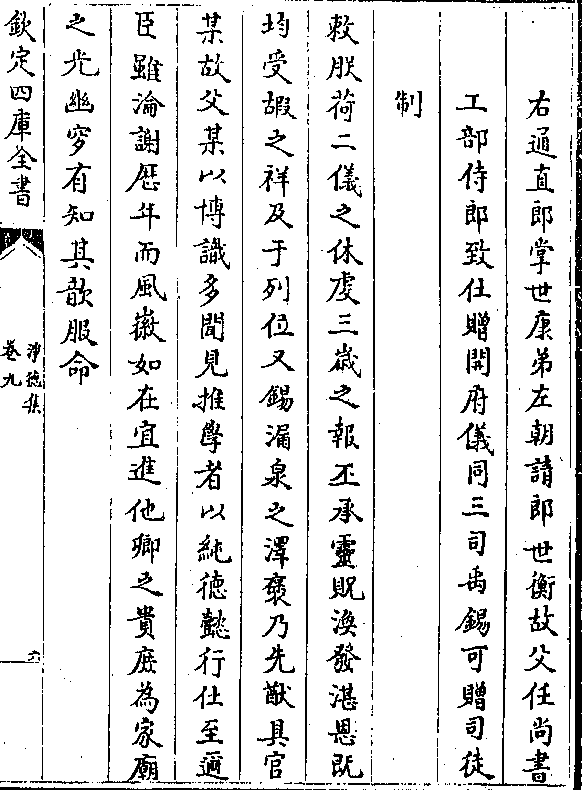 右通直郎掌世康弟左朝請郎世衡故父任尚書
工部侍郎致仕贈開府儀同三司禹錫可贈司徒
制
敕朕荷二儀之休虔三歳之報丕承靈貺渙發湛恩既
均受嘏之祥及于列位又錫漏泉之澤褒乃先猷具官
某故父某以博識多聞見推學者以純徳懿行仕至邇
臣雖淪謝歴年而風徽如在宜進他卿之貴庶為家廟
之光幽穸有知其歆服命
欽定四庫全書
淨徳集
卷九
六